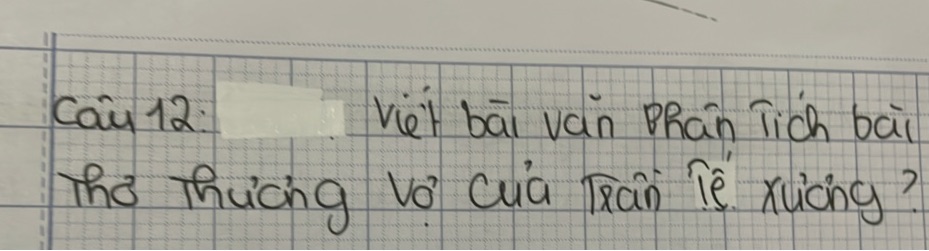 Câu 12: Viết bài văn phân tích bài
thơ Thương vợ của Trần Tế Xương?